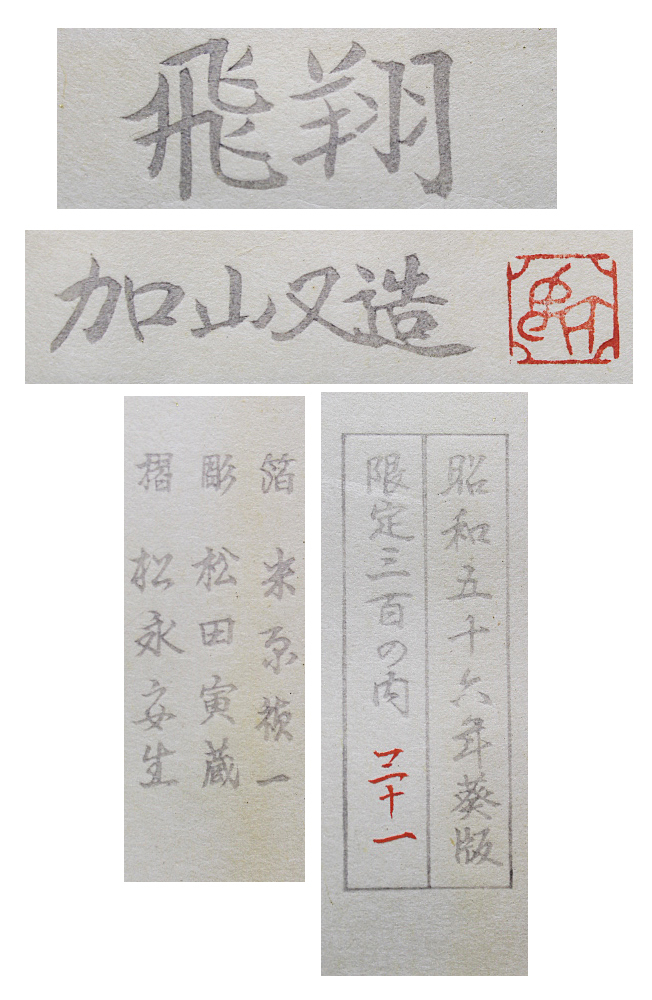 飛翔
加山又造
箔 米原禎一
彫 松田寅蔵
摺 松永安生
昭和五十六年葵版
限定三百の内 三十一